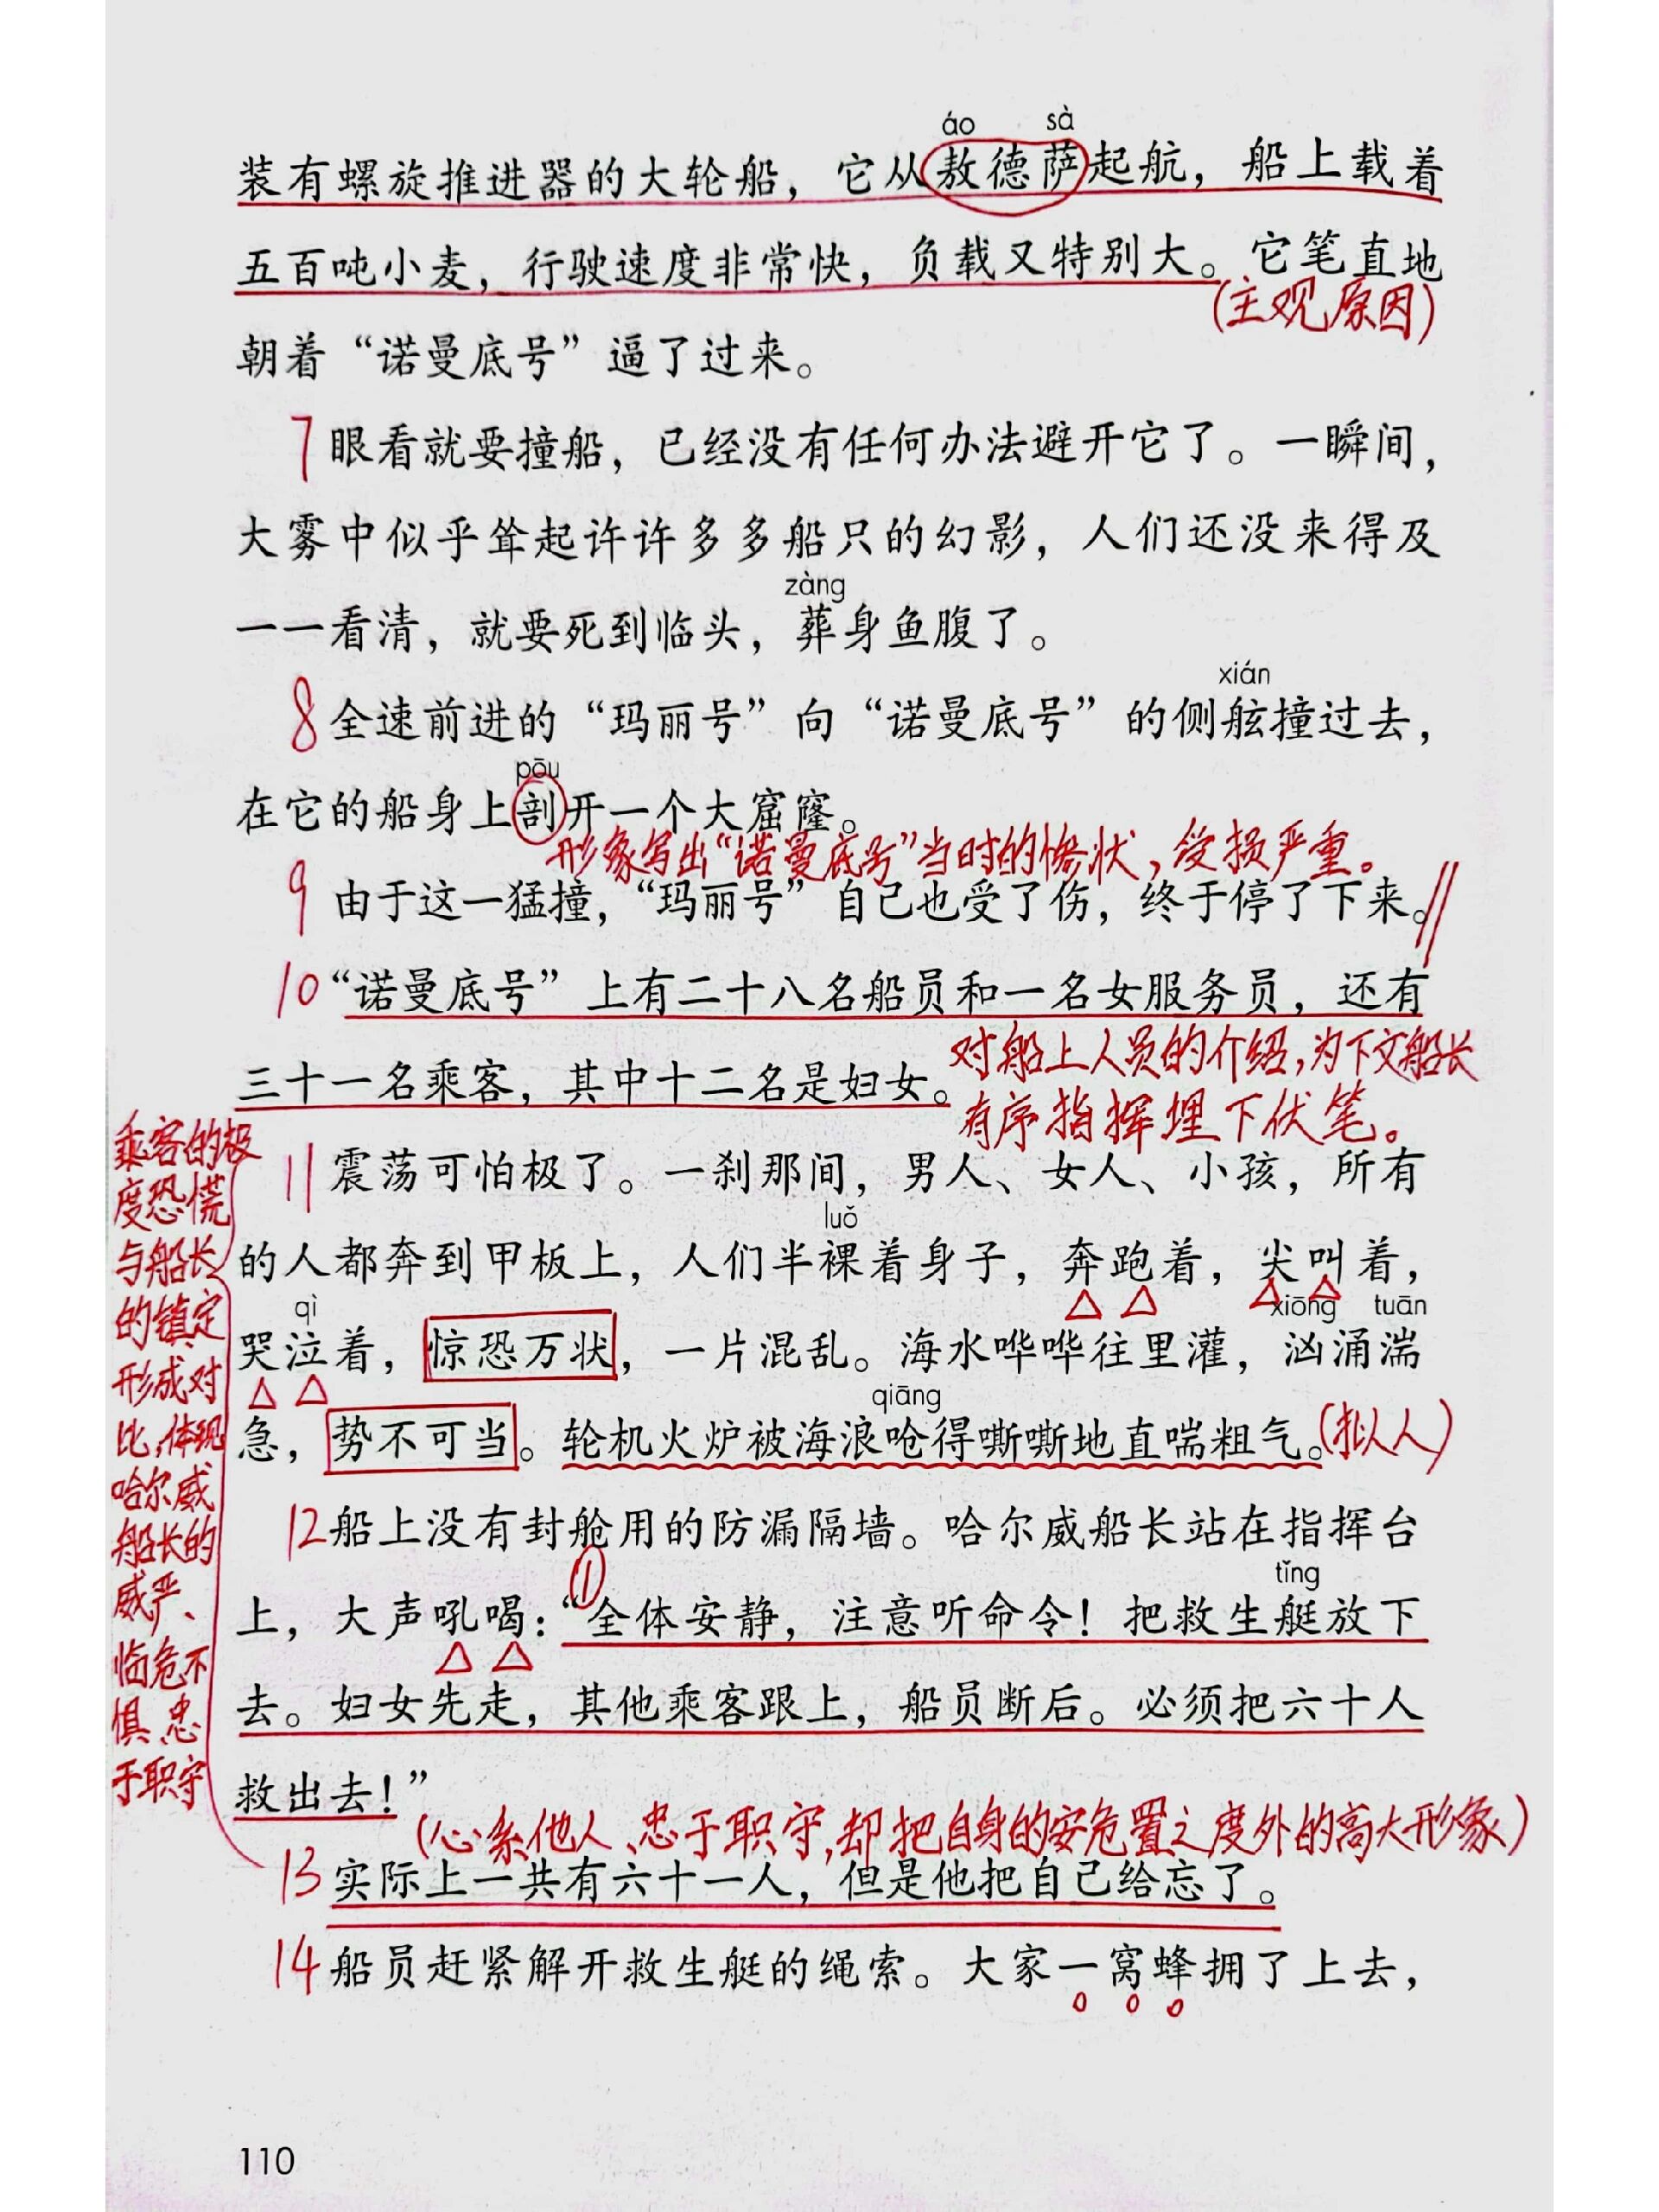 áo sà
装有螺旋推进器的大轮船，它从敖德萨起航，船上载着
五百吨小麦，行驶速度非常快，负载又特别大。它笔直地
(主观原因)
朝着“诺曼底号”逼了过来。
7 眼看就要撞船，已经没有任何办法避开它了。一瞬间，
大雾中似乎耸起许许多多船只的幻影，人们还没来得及
zàng
一一看清，就要死到临头，葬身鱼腹了。
xián
8 全速前进的“玛丽号”向“诺曼底号”的侧舷撞过去，
pōu
在它的船身上剖开一个大窟窿。
形象写出“诺曼底号”当时的惨状，受损严重。
9 由于这一猛撞，“玛丽号”自己也受了伤，终于停了下来。
10 “诺曼底号”上有二十八名船员和一名女服务员，还有
三十一名乘客，其中十二名是妇女。
对船上人员的介绍，为下文船长
有序指挥埋下伏笔。
11 震荡可怕极了。一刹那间，男人、女人、小孩，所有
luǒ
的人都奔到甲板上，人们半裸着身子，奔跑着，尖叫着，
qì xiōng tuān
哭泣着，惊恐万状，一片混乱。海水哗哗往里灌，汹涌湍
qiāng
急，势不可当。轮机火炉被海浪呛得嘶嘶地直喘粗气。(拟人)
12 船上没有封舱用的防漏隔墙。哈尔威船长站在指挥台
① tǐng
上，大声吼喝：“全体安静，注意听命令！把救生艇放下
去。妇女先走，其他乘客跟上，船员断后。必须把六十人
救出去！”
(心系他人、忠于职守，却把自身的安危置之度外的高大形象)
13 实际上一共有六十一人，但是他把自己给忘了。
14 船员赶紧解开救生艇的绳索。大家一窝蜂拥了上去，
乘客的极
度恐慌
与船长
的镇定
形成对
比，体现
哈尔威
船长的
威严、
临危不
惧、忠
于职守
110